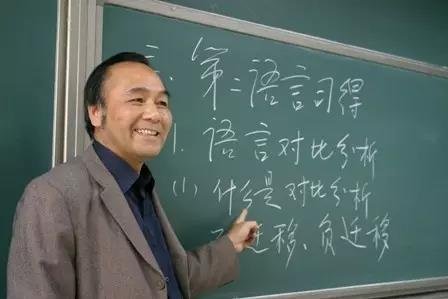 三.第二语言习得
1.语言对比分析
(1)什么是对比分析
正迁移、负迁移